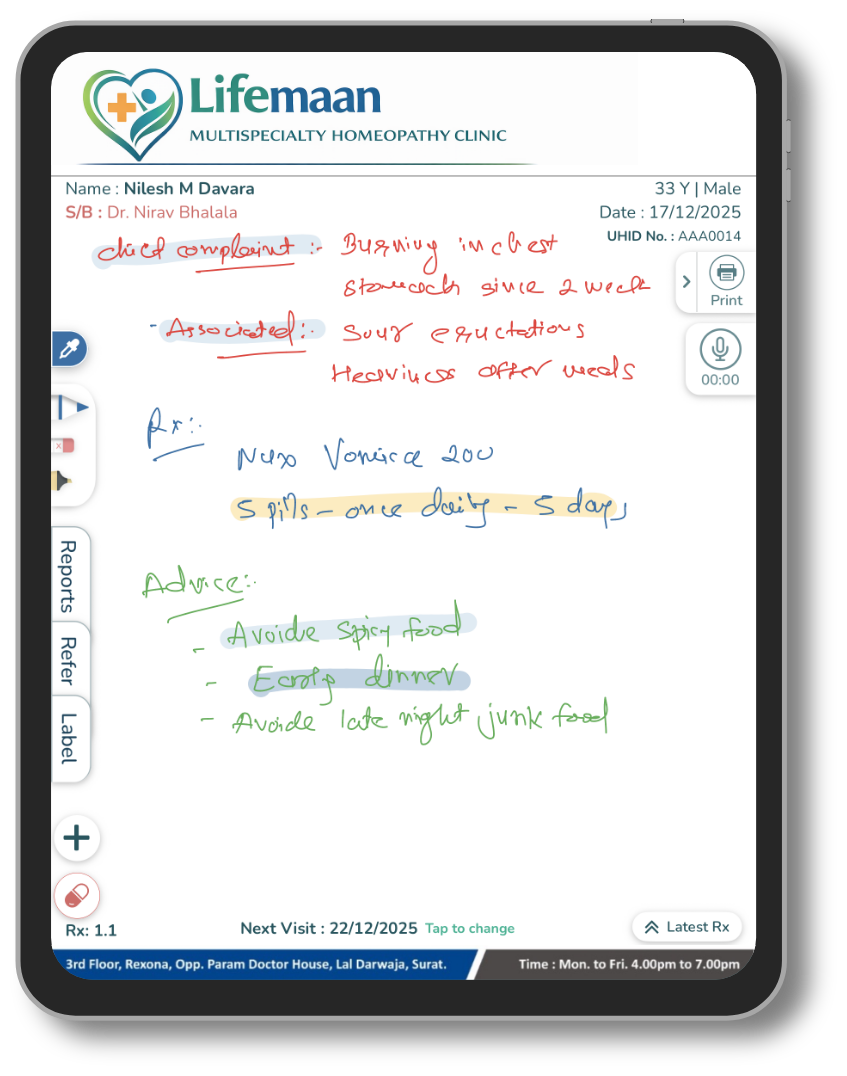 Lifemaan
MULTISPECIALTY HOMEOPATHY CLINIC
Name : Nilesh M Davara
33 Y | Male
S/B : Dr. Nirav Bhalala
Date : 17/12/2025
UHID No. : AAA0014
chief complaint :- Burning in chest
Stomach since 2 week
- Associated :- Sour eructations
Heaviness after meals
Print
00:00
Rx :-
Nux Vomica 200
5 pills - once daily - 5 days
Advice :-
- Avoide spicy food
- Early dinner
- Avoide late night junk food
Reports
Refer
Label
Rx: 1.1
Next Visit : 22/12/2025 Tap to change
Latest Rx
3rd Floor, Rexona, Opp. Param Doctor House, Lal Darwaja, Surat.
Time : Mon. to Fri. 4.00pm to 7.00pm